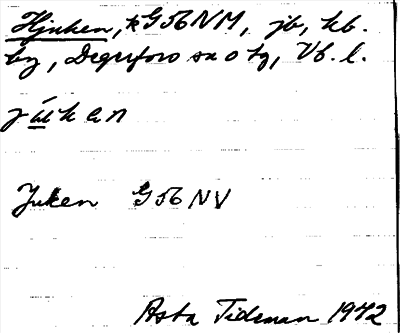 Hjuken, k G56NM, jb, kb.
by, Degerfors sn o tg, Vb. l.
jú̲k en
Juken G56 NV
Asta Tideman 1942